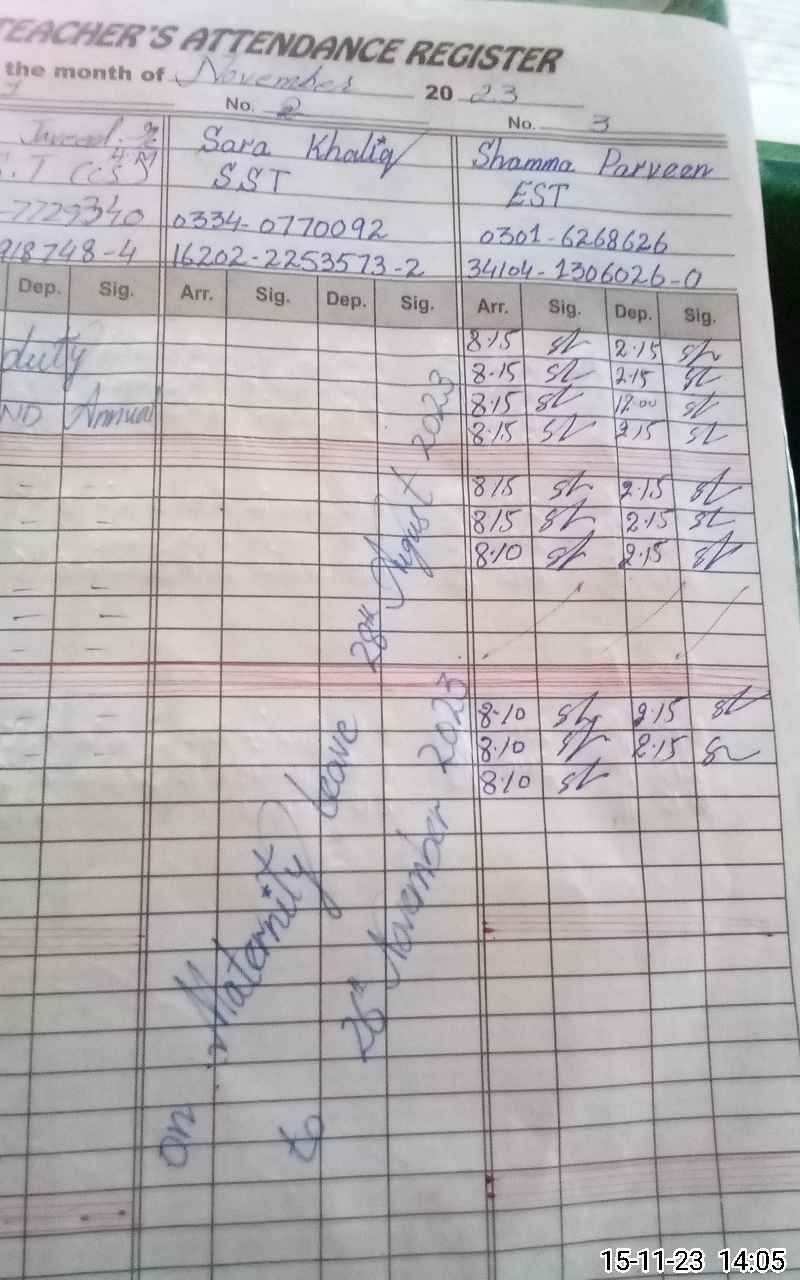 TEACHER'S ATTENDANCE REGISTER
the month of November 2023
No. 2 No. 3
Sara Khaliq Shamma Parveen
SST EST
-7729340 0334-0770092 0301-6268626
918748-4 16202-2253573-2 34104-1306026-0
Dep. Sig. Arr. Sig. Dep. Sig. Arr. Sig. Dep. Sig.
8.15 2.15
duty 8.15 2.15
8.15 12.00
ND Annual 8.15 2.15
8.15 2.15
8.15 2.15
8.10 2.15
8.10 2.15
8.10 2.15
8.10
on Maternity leave 28th August 2023
to 28th November 2023
15-11-23 14:05